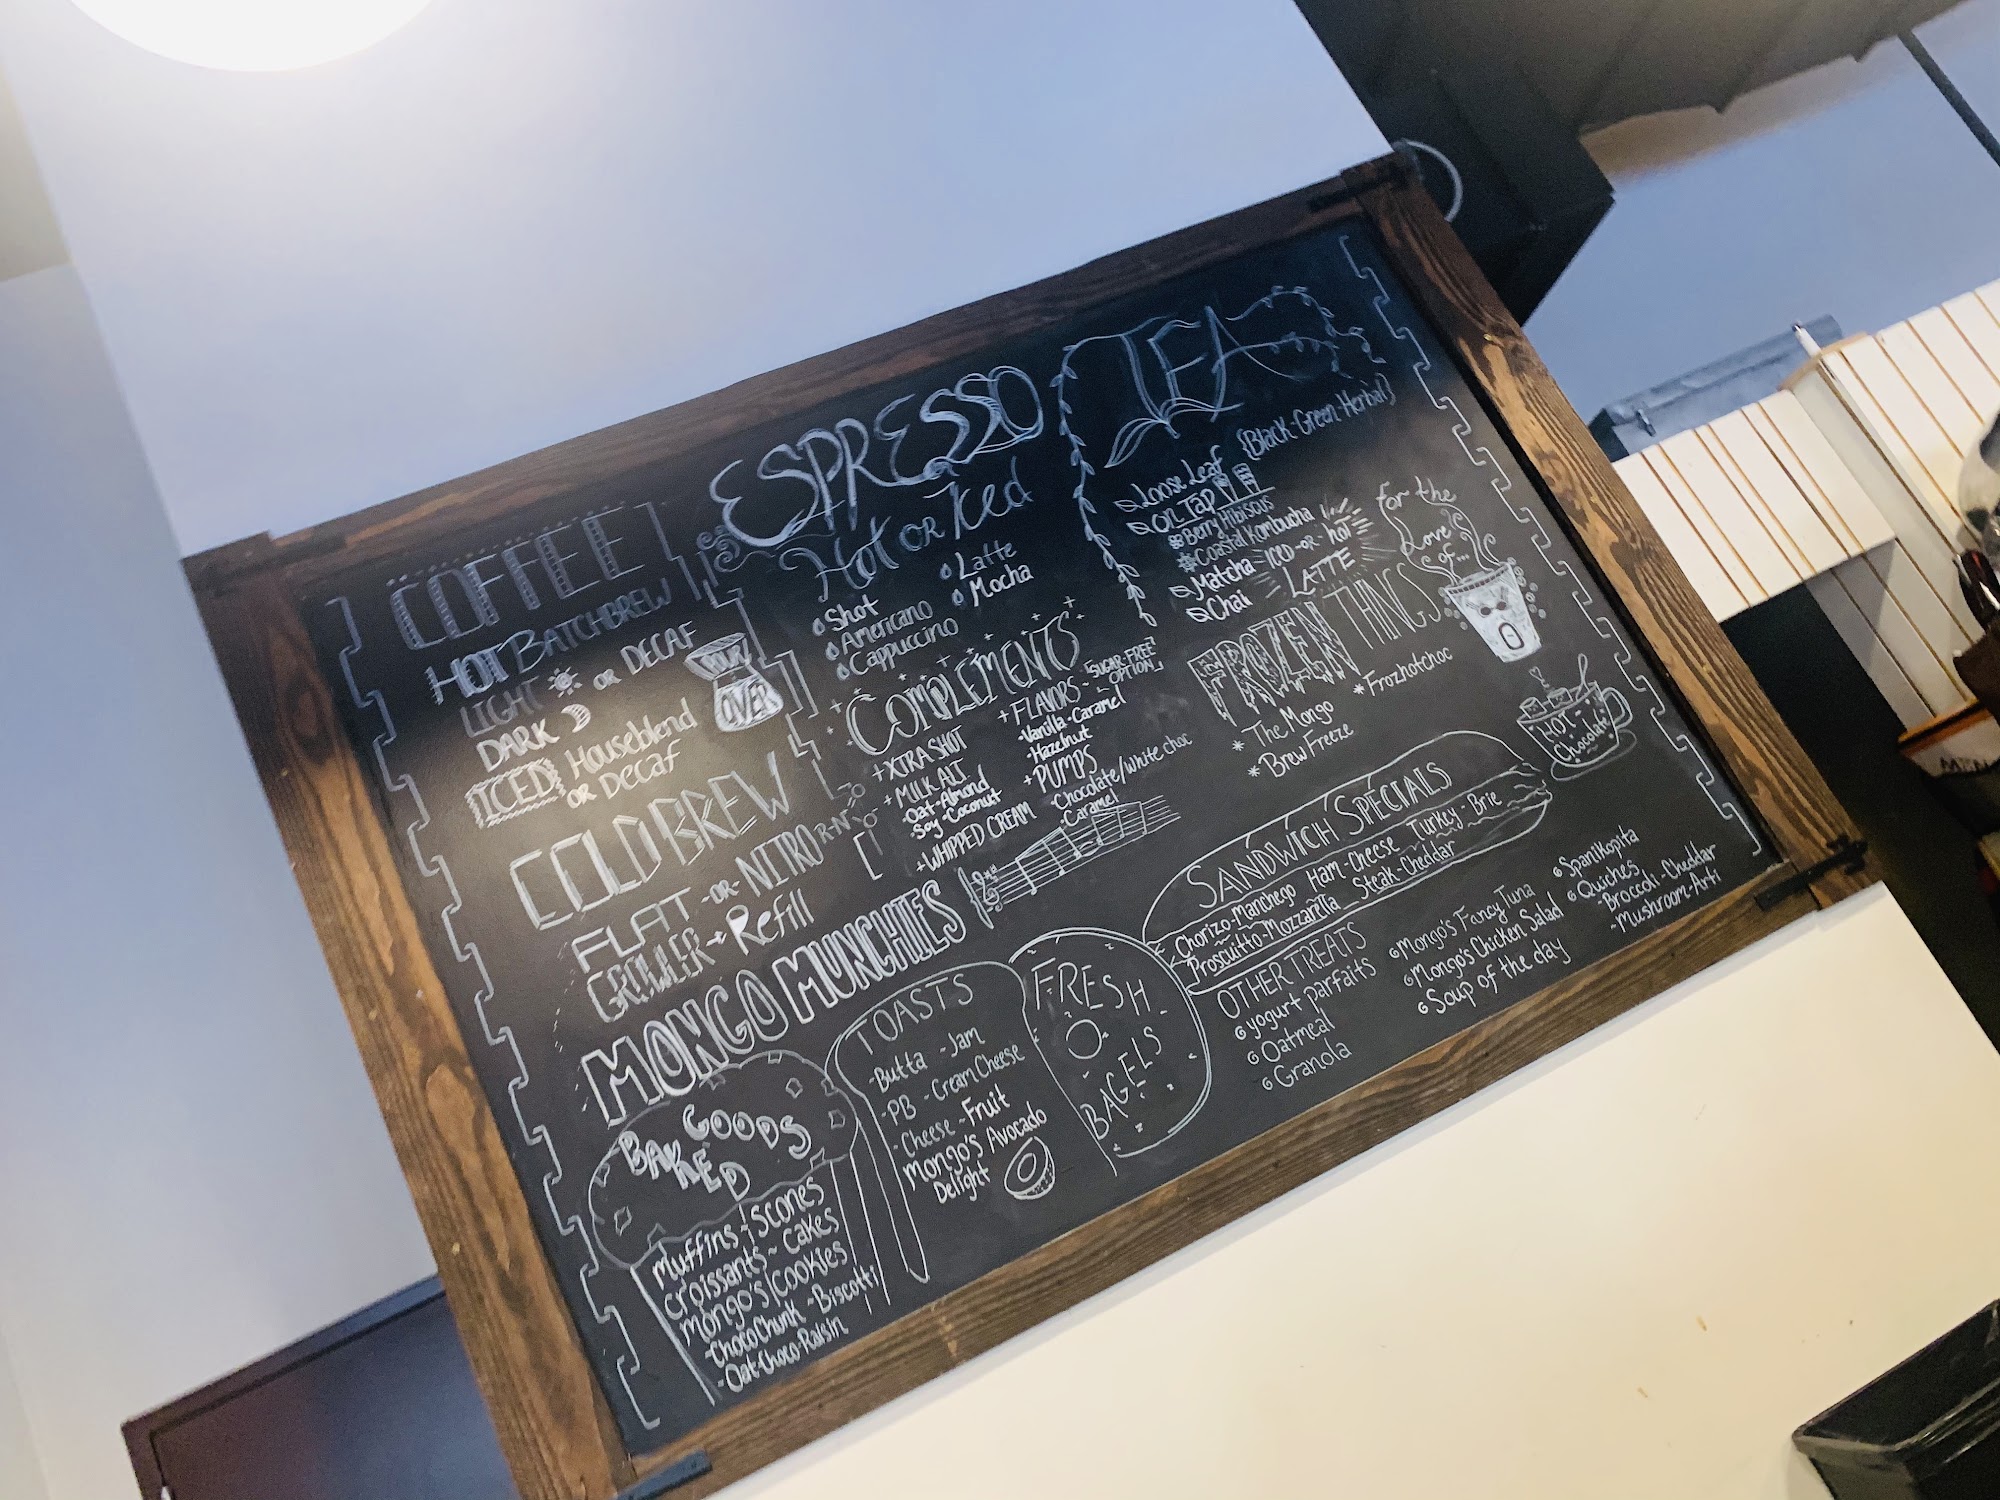 COFFEE
HOT BATCHBREW
LIGHT OR DECAF
DARK
POUR
OVER
ICED Houseblend
OR Decaf
COLD BREW
FLAT -OR- NITRO
GROWLER → Refill
ESPRESSO
Hot OR Iced
Shot
Americano
Cappuccino
Latte
Mocha
COMPLEMENTS
+ XTRA SHOT
+ MILK ALT
-Oat-Almond
-Soy-Coconut
+WHIPPED CREAM
+ FLAVORS - SUGAR FREE
OPTION
-Vanilla-Caramel
-Hazelnut
+PUMPS
-Chocolate/white choc
-Caramel
TEA
Loose Leaf {Black-Green-Herbal}
On Tap
Berry Hibiscus
Coastal Kombucha
Matcha - ICED-OR-HOT
Chai LATTE
For the
Love
of...
FROZEN THINGS
* The Mongo
* Brew Freeze
* Frozhotchoc
HOT
Chocolate
MONGO MUNCHIES
BAKED
GOODS
Muffins - Scones
Croissants - Cakes
Mongo's Cookies
-Choco Chunk - Biscotti
-Oat-Choco-Raisin
TOASTS
-Butta -Jam
-PB -Cream Cheese
-Cheese -Fruit
Mongo's Avocado
Delight
FRESH
BAGELS
SANDWICH SPECIALS
Chorizo-Manchego Ham-Cheese Turkey-Brie
Proscuitto-Mozzarella Steak-Cheddar
OTHER TREATS
yogurt parfaits
Oatmeal
Granola
Mongo's Fancy Tuna
Mongo's Chicken Salad
Soup of the day
Spanikopita
Quiches
-Broccoli-Cheddar
-Mushroom-Arti
MEN